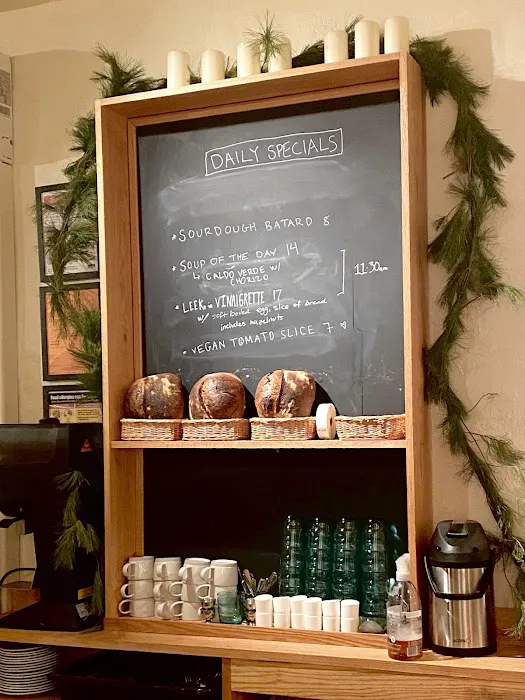 DAILY SPECIALS
* SOURDOUGH BATARD 8
* SOUP OF THE DAY 14
↳ CALDO VERDE W/
CHORIZO
11:30am
* LEEK VINAIGRETTE 17
w/ soft boiled egg, slice of bread
includes hazelnuts
* VEGAN TOMATO SLICE 7 ♡